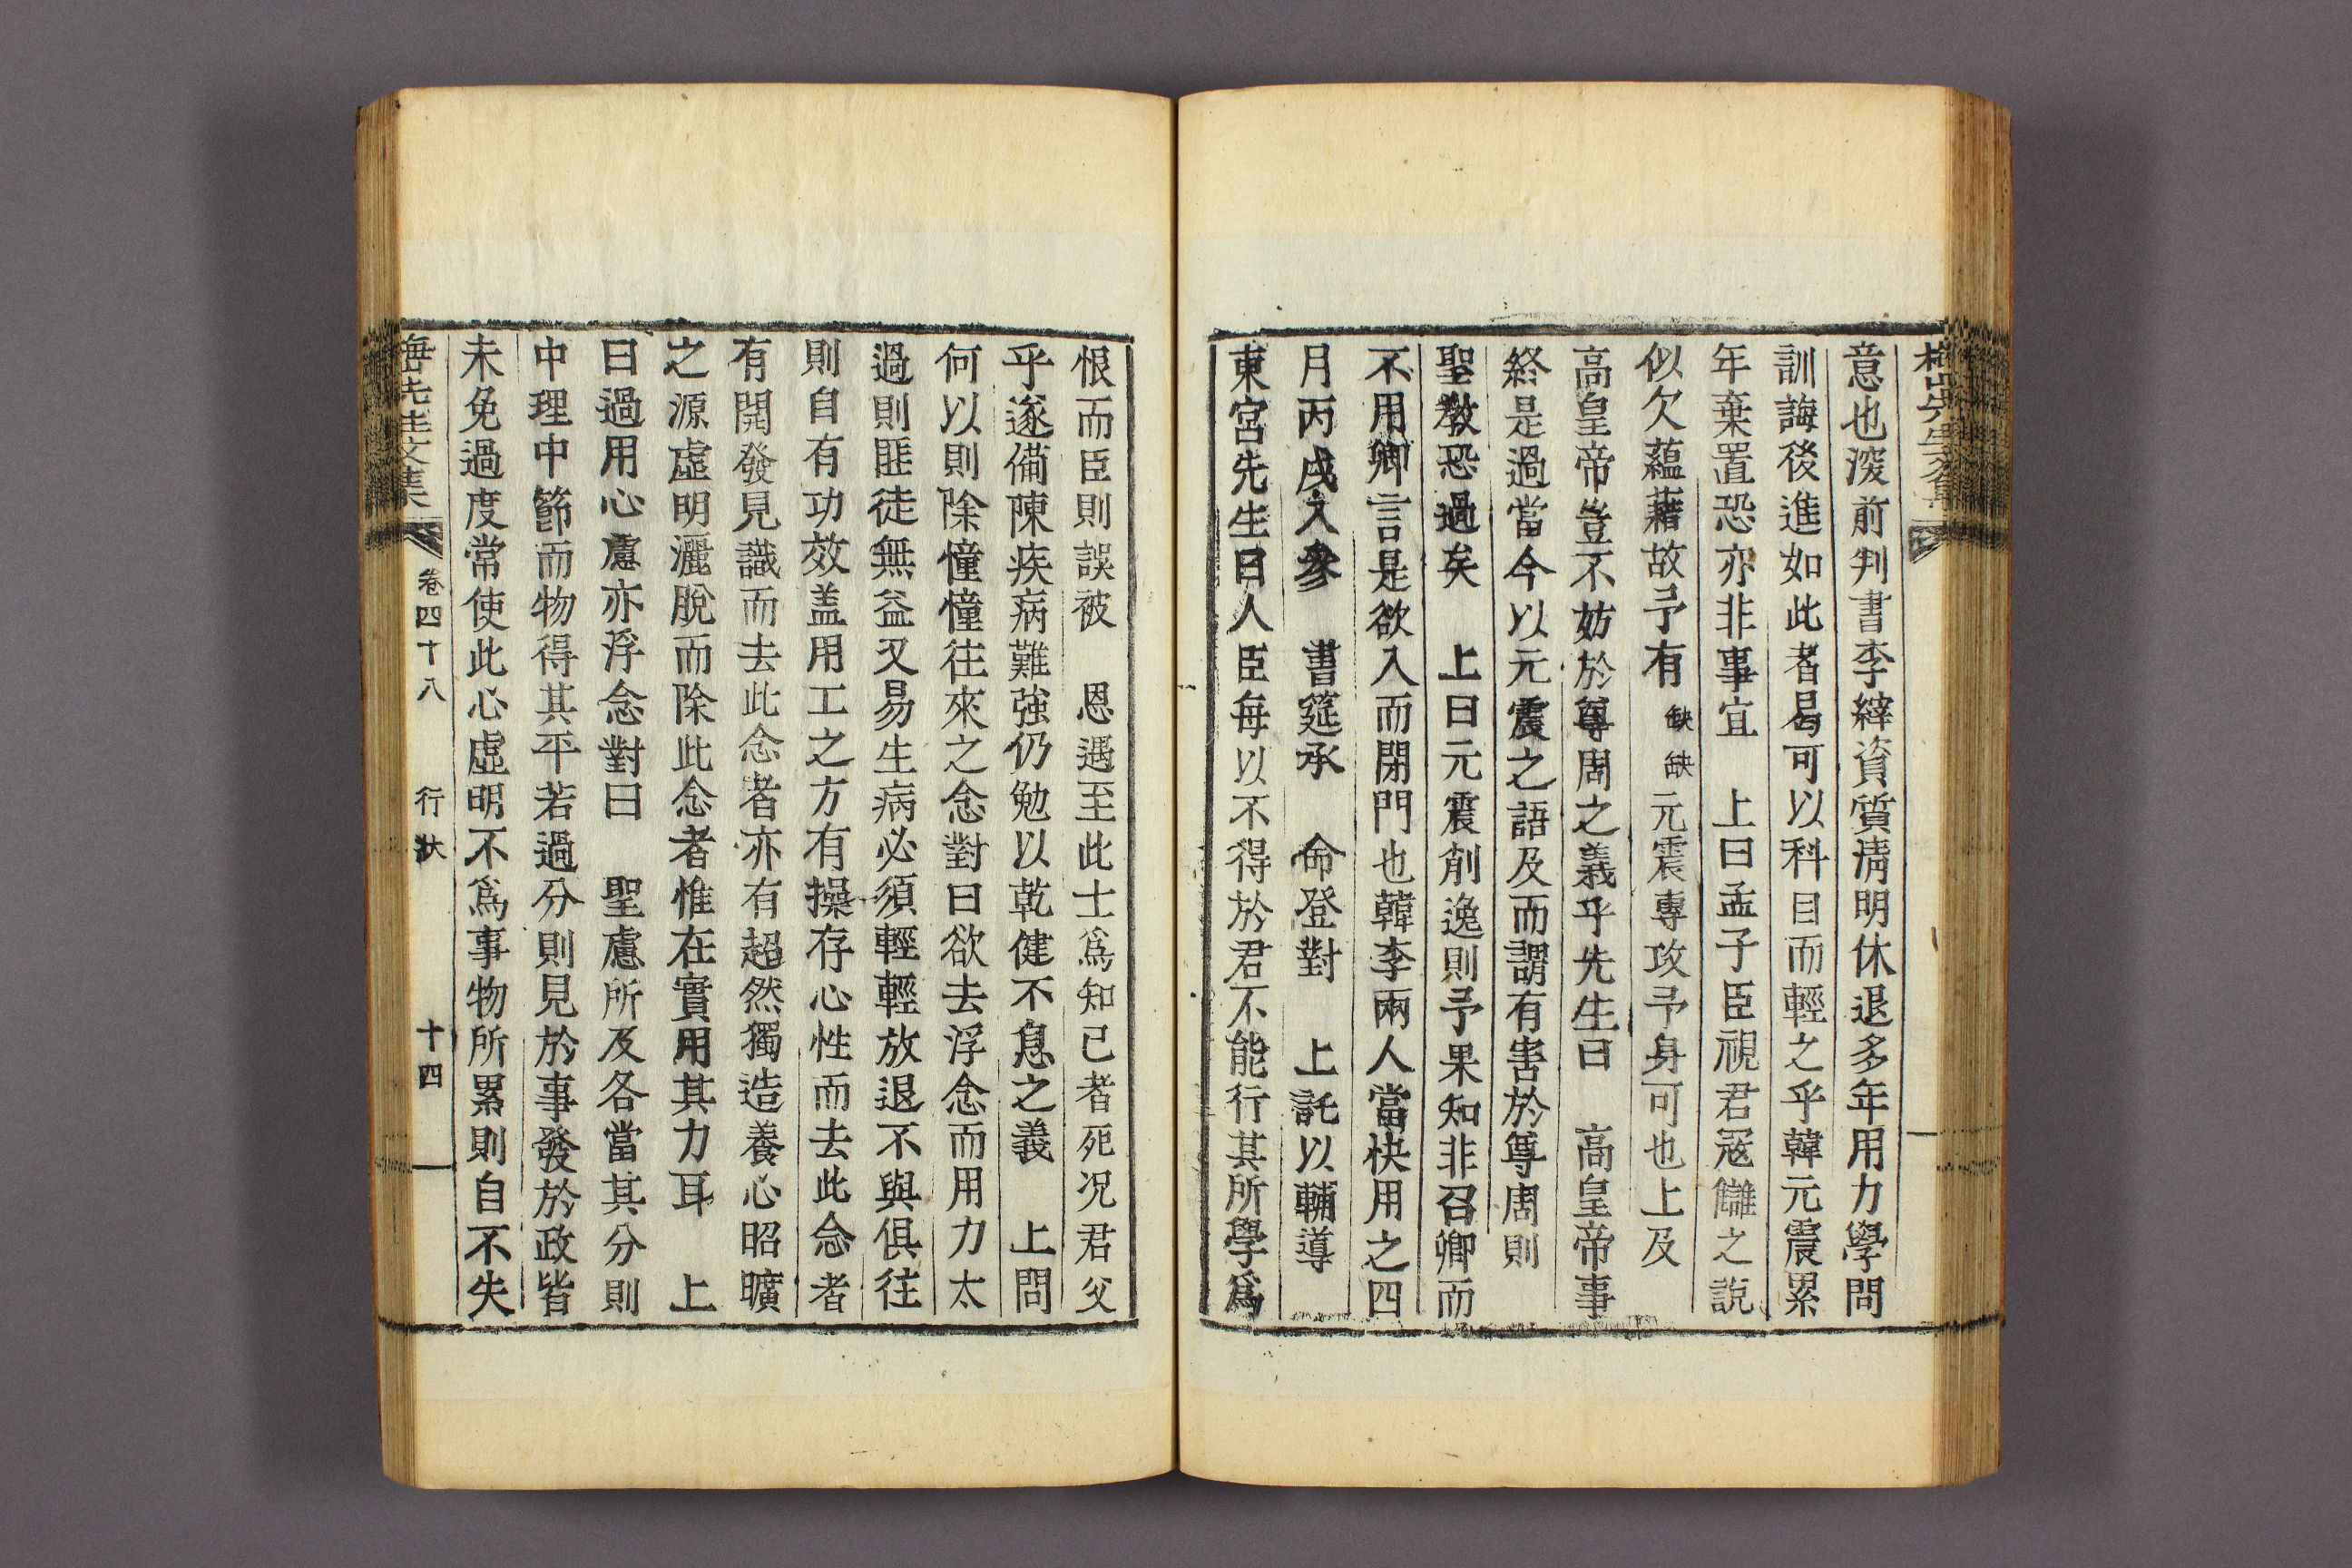 意也深前判書李縡資質淸明休退多年用力學問
訓誨後進如此者曷可以科目而輕之乎韓元震累
年棄置恐亦非事宜　上曰孟子臣視君冦讎之說
似欠蘊藉故予有缺缺元震專攻予身可也上及
高皇帝豈不妨於尊周之義乎先生曰　高皇帝事
終是過當今以元震之語及而謂有害於尊周則
聖敎恐過矣　上曰元震削逸則予果知非召卿而
不用卿言是欲入而閉門也韓李兩人當快用之四
月丙戌入參　書筵承　命登對　上託以輔導
東宮先生曰人臣每以不得於君不能行其所學爲
恨而臣則誤被　恩遇至此士爲知己者死况君父
乎遂備陳疾病難強仍勉以乾健不息之義　上問
何以則除憧憧往來之念對曰欲去浮念而用力太
過則匪徒無益又易生病必須輕輕放退不與俱往
則自有功效盖用工之方有操存心性而去此念者
有開發見識而去此念者亦有超然獨造養心昭曠
之源虛明灑脫而除此念者惟在實用其力耳　上
曰過用心慮亦浮念對曰　聖慮所及各當其分則
中理中節而物得其平若過分則見於事發於政皆
未免過度常使此心虛明不爲事物所累則自不失
先生文集　卷四十八　行狀　十四